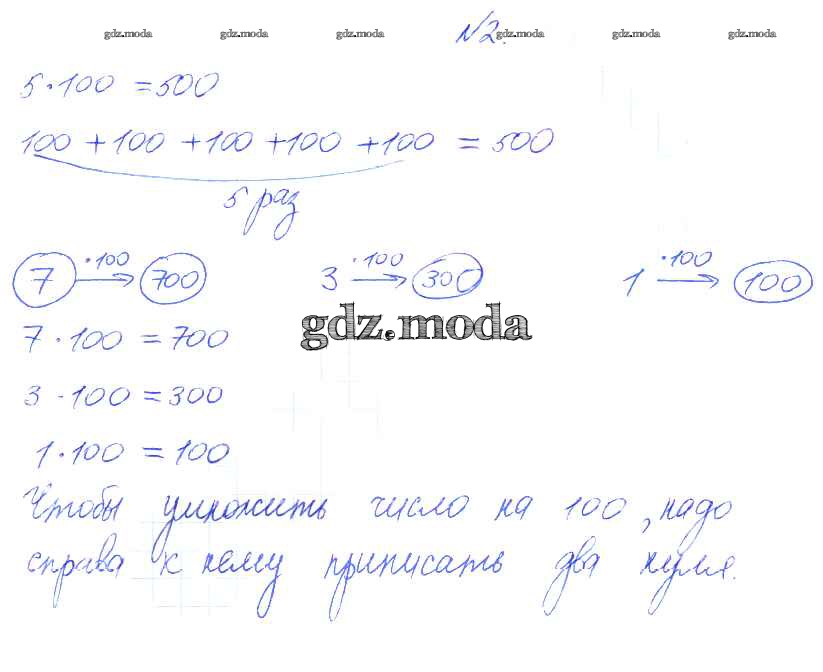 gdz.moda gdz.moda gdz.moda №2. gdz.moda gdz.moda gdz.moda
5·100 = 500
100 + 100 + 100 + 100 + 100 = 500
5 раз
7 ·100 → 700 3 ·100 → 300 1 ·100 → 100
gdz.moda
7 · 100 = 700
3 · 100 = 300
1 · 100 = 100
Чтобы умножить число на 100, надо
справа к нему приписать два нуля.